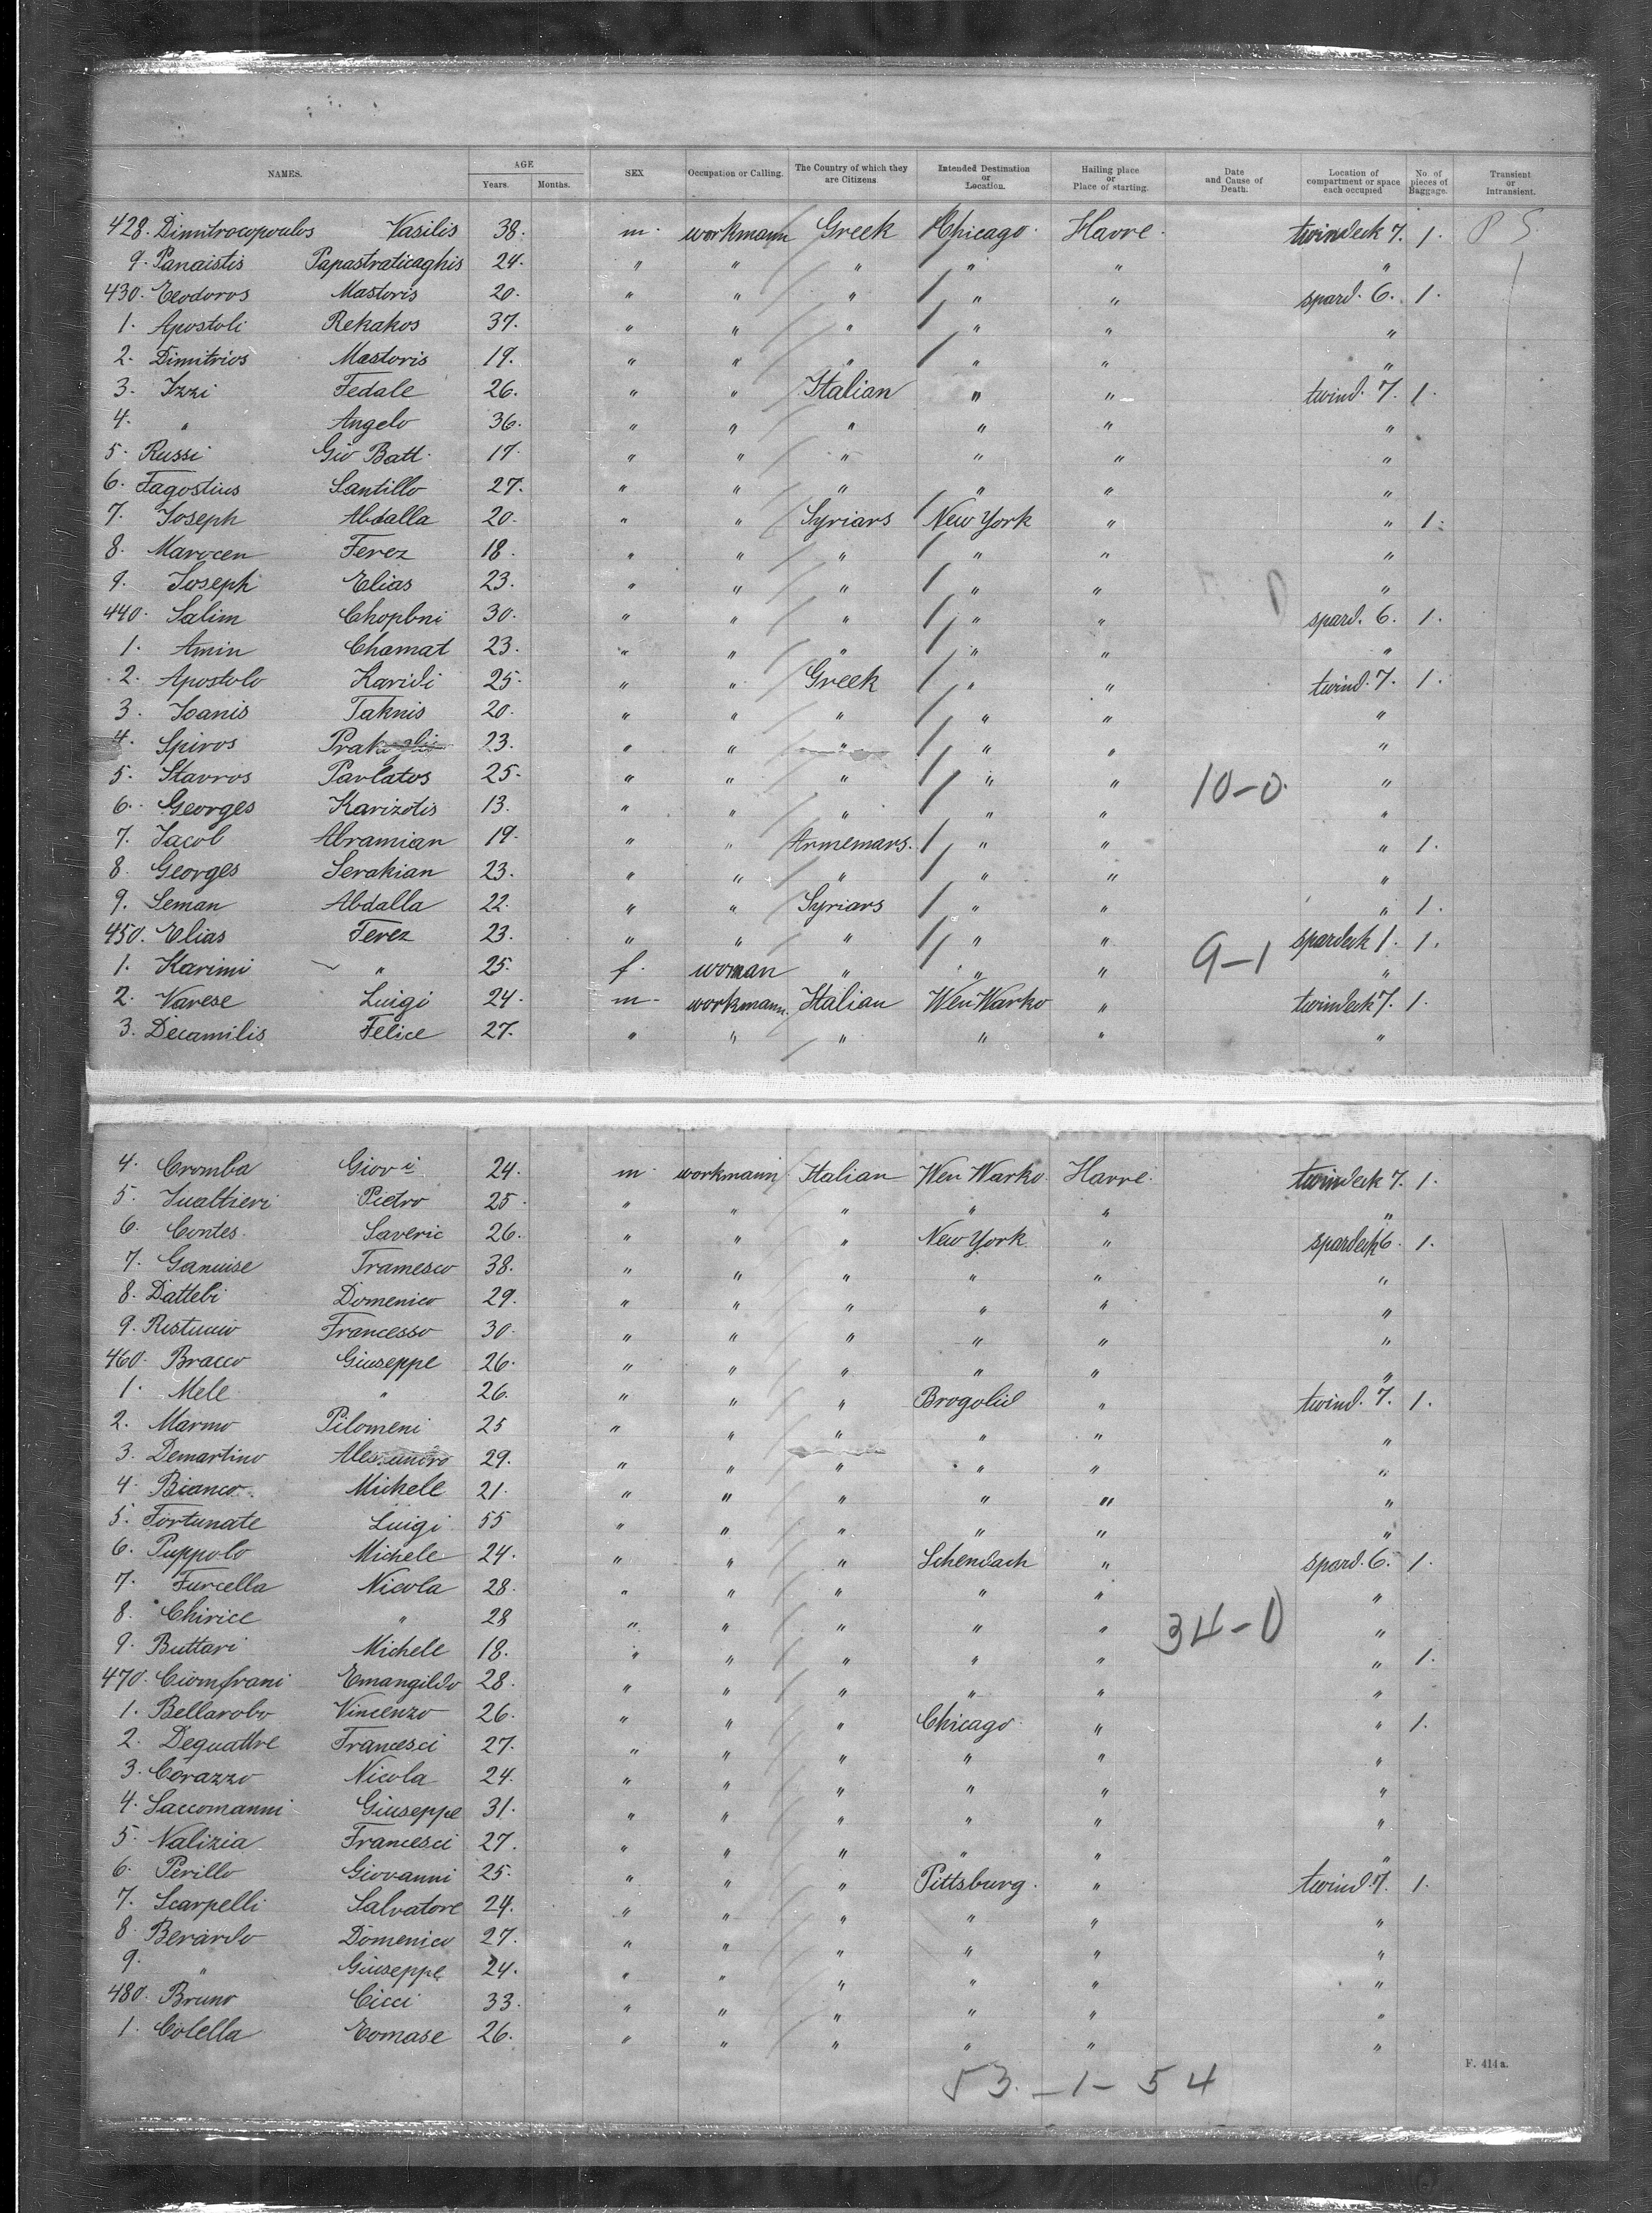 NAMES. AGE SEX Occupation or Calling. The Country of which they are Citizens. Intended Destination or Location. Hailing place or Place of starting. Date and Cause of Death. Location of compartment or space each occupied No. of pieces of Baggage. Transient or Intransient.
Years. Months.
428. Dimitrocopoulos Vasilis 38. m. workmann Greek Chicago. Havre. twindeck 7. 1. P S
9. Panaistis Papastraticaghis 24. " " " " " "
430. Eeodoros Mastoris 20. " " " " " spard. 6. 1.
1. Apostoli Rekakos 37. " " " " " "
2. Dimitrios Mastoris 19. " " " " " "
3. Izzi Fedale 26. " " Italian " " twind. 7. 1.
4. " Angelo 36. " " " " " "
5. Russi Gio Batt. 17. " " " " " "
6. Fagostius Santillo 27. " " " " " "
7. Joseph Abdalla 20. " " Syriars New York " " 1.
8. Marocen Ferez 18. " " " " " "
9. Joseph Elias 23. " " " " " "
440. Salim Chopbni 30. " " " " " spard. 6. 1.
1. Amin Chamat 23. " " " " " "
2. Apostolo Karidi 25. " " Greek " " twind. 7. 1.
3. Joanis Taknis 20. " " " " " "
4. Spiros 23. " " " " " "
5. Stavros Pavlatos 25. " " " " " 10-0. "
6. Georges Karizotis 13. " " " " " "
7. Jacob Abramian 19. " " Armemars. " " " 1.
8. Georges Serakian 23. " " " " " "
9. Seman Abdalla 22. " " Syriars " " " 1.
450. Elias Ferez 23. " " " " " spardeck 1. 1.
1. Karimi " 25. f. woman " " " 9-1 "
2. Varese Luigi 24. m. workmann. Italian Wen Warko " twindeck 7. 1.
3. Decamilis Felice 27. " " " " " "
4. Cromba Giov i 24. m. workmann Italian Wen Warko. Havre. twindeck 7. 1.
5. Jualtieri Pietro 25. " " " " " "
6. Contes. Saveric 26. " " " New York. " spardeck 6. 1.
7. Ganuise Framesco 38. " " " " " "
8. Dattebi Domenico 29. " " " " " "
9. Ristuccio Francesso 30. " " " " " "
460. Bracco Giuseppe 26. " " " " " "
1. Mele " 26. " " " Brogolid " twind. 7. 1.
2. Marmo Pilomeni 25 " " " " " "
3. Demartino Alessandro 29. " " " " " "
4. Bianco. Michele 21. " " " " " "
5. Fortunate Luigi 55 " " " " " "
6. Puppolo Michele 24. " " " Schendach " spard. 6. 1.
7. Furcella Nicola 28. " " " " " "
8. Chirice " 28 " " " " " 34-0 "
9. Buttari Michele 18. " " " " " " 1.
470. Ciomfrani Emangildo 28. " " " " " "
1. Bellarobo Vincenzo 26. " " " Chicago. " " 1.
2. Dequattre Francesci 27. " " " " " "
3. Corazzo Nicola 24. " " " " " "
4. Saccomanni Giuseppe 31. " " " " " "
5. Nalizia Francesci 27. " " " " " "
6. Perillo Giovanni 25. " " " Pittsburg. " twind. 7. 1.
7. Scarpelli Salvatore 24. " " " " " "
8. Berardo Domenico 27. " " " " " "
9. " Giuseppe 24. " " " " " "
480. Bruno Cicci 33. " " " " " "
1. Colella Eomase 26. " " " " " "
F. 414 a.
53. - 1 - 54